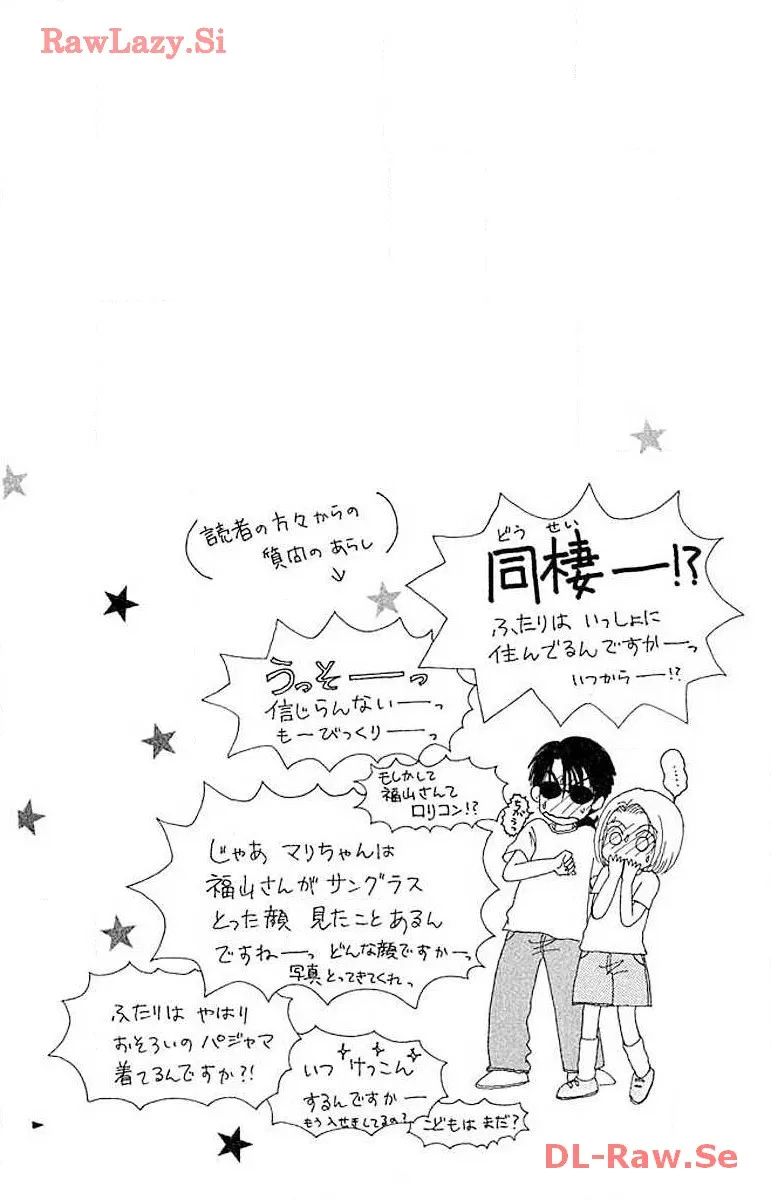 RawLazy.Si
読者の方々からの
質問のあらし
どうせい
同棲ー!?
ふたりは いっしょに
住んでるんですかーっ
いつからー!?
うっそーっ
信じらんないーっ
もーびっくりーっ
もしかして
福山さんて
ロリコン!?
ちがうっ
……
じゃあ マリちゃんは
福山さんが サングラス
とった顔 見たことあるん
ですねーっ どんな顔ですかーっ
写真とってきてくれっ
ふたりは やはり
おそろいの パジャマ
着てるんですか?!
いつ けっこん
するんですかー
もう入せきしてるの?
こどもは まだ?
DL-Raw.Se